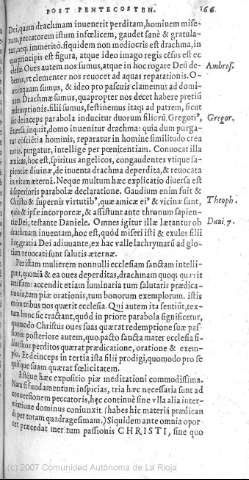 POST PENTECOSTEN. 166.
Dei, quàm drachmam inuenerit perditam, hominem mise-
rum, peccatorem istum infœlicem, gaudet sanè & gratula-
tur, acq; immeritò. siquidem non mediocris est drachma, in
qua principis est figura, atque ideo imago regis censusest ec
clesiæ. Oues autem nos sumus, atque in hoc rogare Dei de-
bemus, vt clementer nos reuocet ad aquas reparationis. O-
ues inquam sumus, & ideo pro pascuis clamemus ad domi-
num Drachmæ sumus, quapropter nos decet habere pretiũ
filii sumus, festinemus itaq; ad patrem, sicut
deinceps parabola inducitur duorum filiorũ. Gregori⁹,
inquit, domo inuenitur drachma: quia dum purga-
hominis, reparatur in homine similitudo crea
pergatur, intellige per pœnitentiam. Conuocat illa
amicas, hoc est, spiritus angelicos, congaudentes vtique sa-
pientiæ diuinæ, de inuenta drachma deperdita, & reuocata
vitam æterna. Neque multum hæc explicatio diuersa est
superioris parabolæ declaratione. Gaudium enim suit &
Christo & supernis virtutib⁹, quæ amicæ ei⁹ & vicinæ sunt,
quia & ipsæ incorporeæ, & assistunt ante thronum sapien-
tis, testante Daniele. Omnes igitur illæ lætantur ob
drachmam inuentam, hoc est, quod miseri isti & exules filii
gratia Dei adiuuante, ex hac valle lachrymarũ ad glo-
riam reuocati sunt salutis æternæ.
Per istam mulierem nonnulli ecclesiam sanctam intelli-
gunt, quoniã & ea oues deperditas, drachmam quoq; quærit
accendit etiam luminaria tum salutaris prædica-
tionis, tum piæ orationis, tum bonorum exemplorum. istis
tribus non quærit ecclesia. Qui autem ita sentiũt, tex-
tum hunc sic tractant, quòd in priore parabola significetur,
quomodo Christus oues suas quærat redemptione suæ pas-
sionis posteriore autem, quo pacto sancta mater ecclesia fi-
perditos quærat prædicatione, oratione & exem-
plo. Et deinceps in tertia ista filii prodigi, quomodo pro se
quisque suam quærat fœlicitatem.
Estque hæc expositio piæ meditationi commodissima.
Nam si fundamentum inspicias, tria hæc necessaria sunt ad
conuersionem peccatoris, hęc continuè sine vlla alia inter-
missione dominus coniunxit (habes hîc materiã prædican
per totam quadragesimam.) Siquidem ante omnia opor-
tet præcedat meritum passionis CHRISTI, sine quo
Ambros.
Gregor.
Theoph.
Dani. 7.
(c) 2007 Comunidad Autónoma de La Rioja